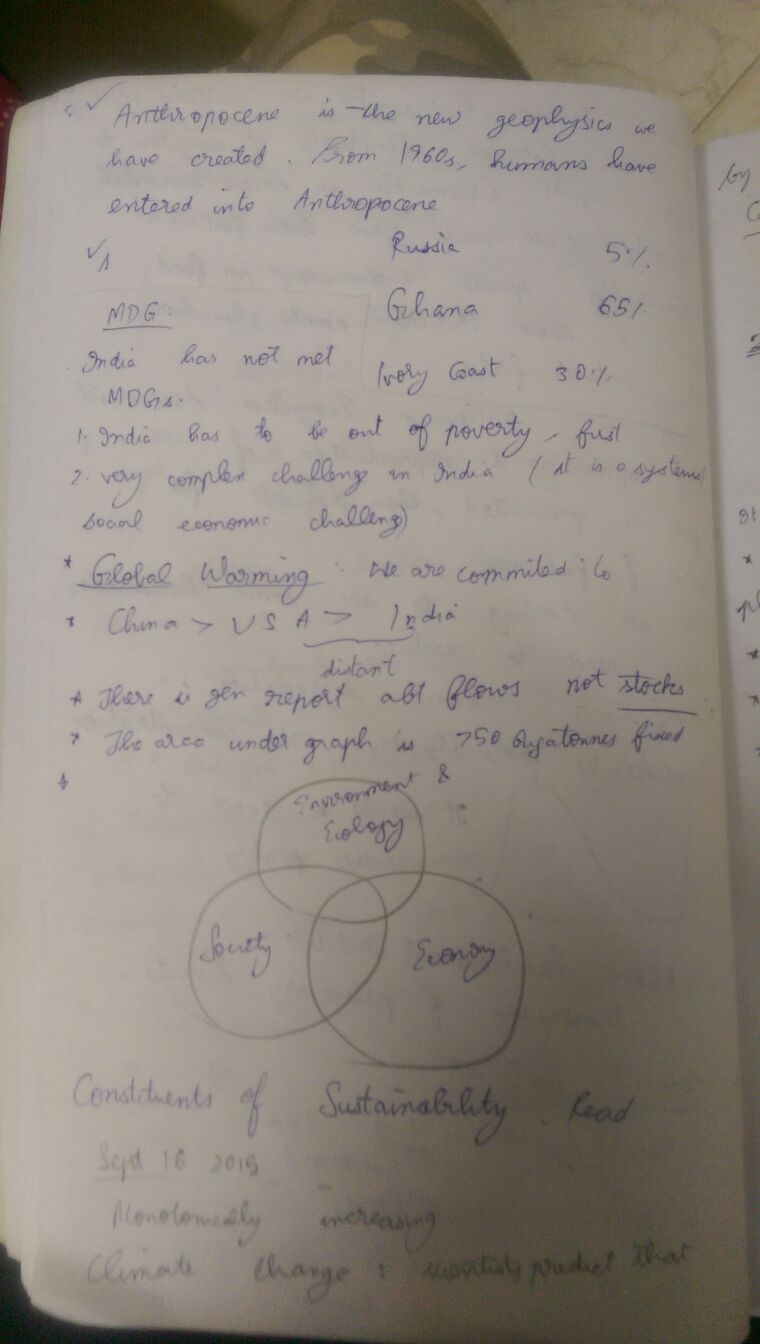 Anthropocene is the new geophysics we
have created. From 1960s, humans have
entered into Anthropocene
Russia 5%
MDG: Ghana 65%
India has not met Ivory Coast 30%
MDGs.
1. India has to be out of poverty, first
2. very complex challenge in India (it is a systems/
social economic challenge)
* Global Warming: We are commited to
* China > USA > India
distant
* There is gen report abt flows not stocks
* The area under graph is 750 fixed
*
Environment &
Ecology
Society Economy
Constituents of Sustainability. Read
Sept 16 2015
Monotonically increasing
Climate Change: scientists predict that
by